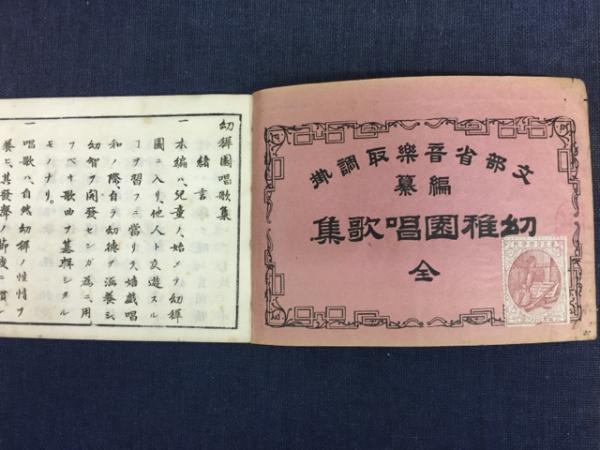 文部省音樂取調掛
編纂
幼稚園唱歌集
全
幼穉園唱歌集
緒言
一 本編ハ、兒童ノ、始メテ幼穉
園ニ入リ、他人ト交遊スル
ヿヲ習フニ當リテ、嬉戯唱
和ノ際、自ラ幼徳ヲ涵養シ、
幼智ヲ開發センガ爲ニ、用
フベキ歌曲ヲ纂輯シタル
モノナリ。
一 唱歌ハ、自然幼穉ノ性情ヲ
養ヒ、其發聲ノ節度ニ慣レ